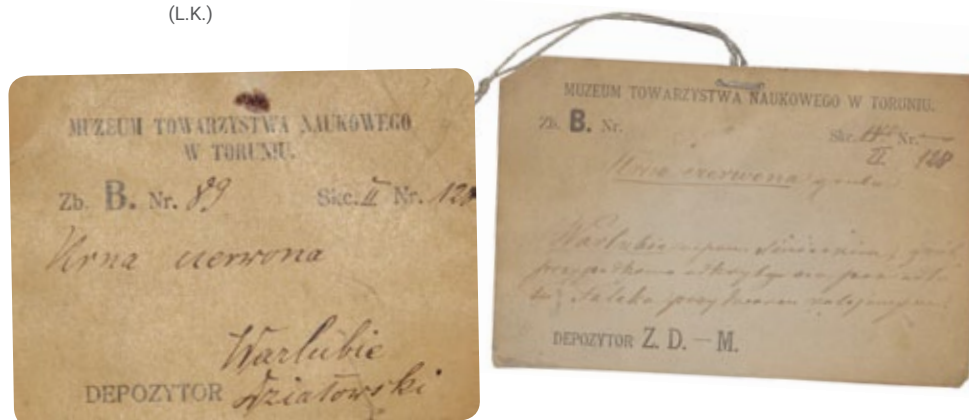 (L.K.)
MUZEUM TOWARZYSTWA NAUKOWEGO
W TORUNIU.
Zb. B. Nr. 89 Skc. II Nr. 128
Urna czerwona
Warlubie
DEPOZYTOR Działowski
MUZEUM TOWARZYSTWA NAUKOWEGO W TORUNIU.
Zb. B. Nr. Skc. Nr.
II 128
Urna czerwona gruba
Warlubie
przypadkowo
DEPOZYTOR Z. D. — M.